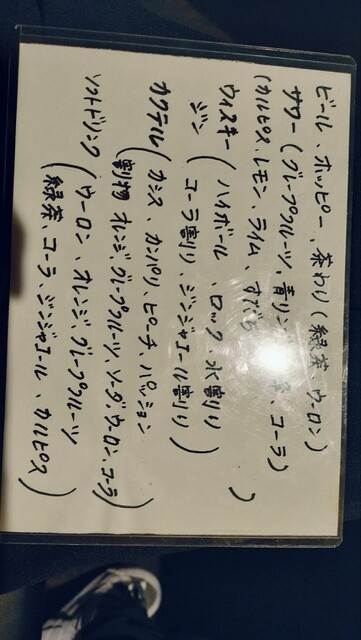 ビール、ホッピー、茶わり(緑茶、ウーロン)
サワー(グレープフルーツ、青リン 茶、コーラ)
(カルピス、レモン、ライム、すだち )
ウィスキー(ハイボール、ロック、水割り
ジン コーラ割り、ジンジャエール割り)
カクテル(カシス、カンパリ、ピーチ、パッション
割物 オレンジ、グレープフルーツ、ソーダ、ウーロン、コーラ)
ソフトドリンク(ウーロン、オレンジ、グレープフルーツ
緑茶、コーラ、ジンジャエール、カルピス)